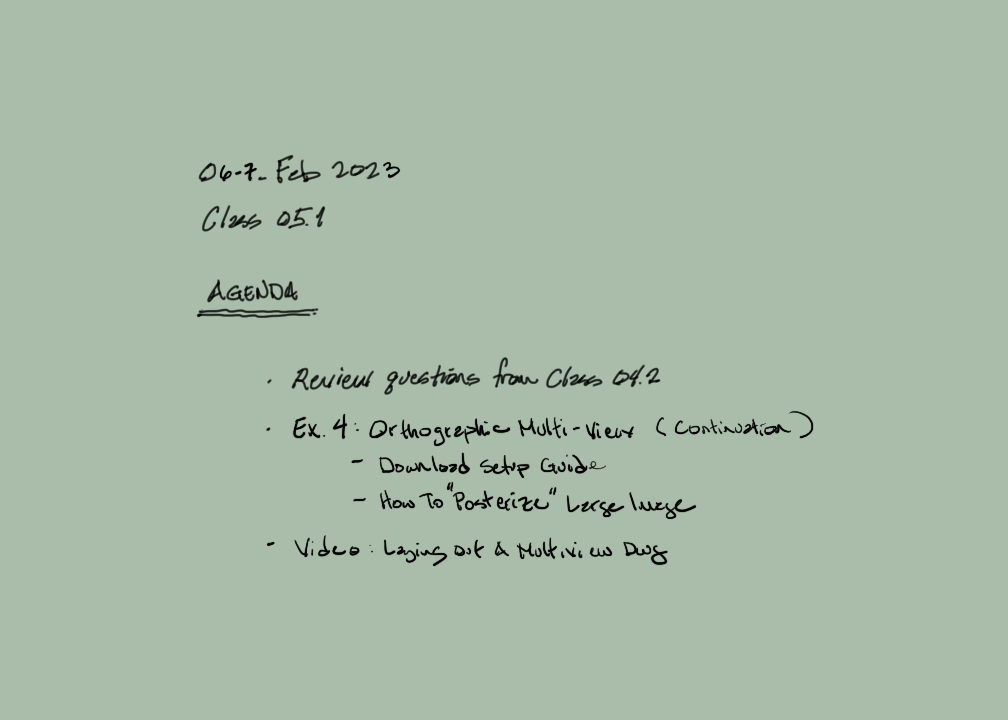 06-7- Feb 2023
Class 05.1
AGENDA
· Review questions from Class 04.2
· Ex. 4: Orthographic Multi-View (Continuation)
- Download Setup Guide
- How To "Posterize" Large Image
- Video: Laying out A Multiview Dwg